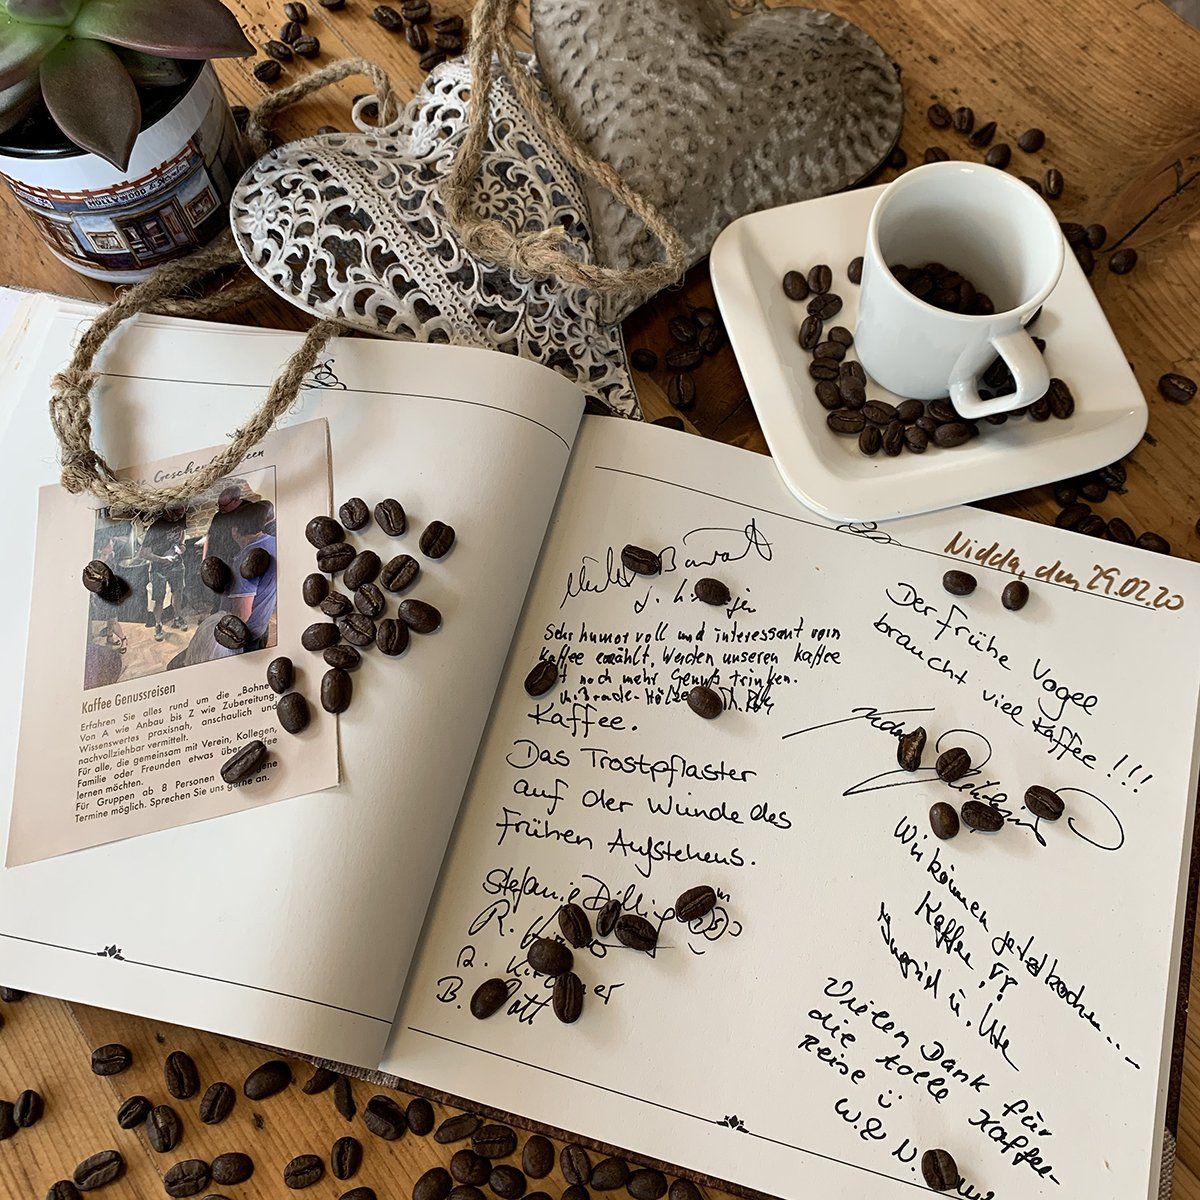 Geschenkideen
Kaffee Genussreisen
Erfahren Sie alles rund um die „Bohne
Von A wie Anbau bis Z wie Zubereitung.
Wissenswertes praxisnah, anschaulich und
nachvollziehbar vermittelt.
Für alle, die gemeinsam mit Verein, Kollegen,
Familie oder Freunden etwas über Kaffee
lernen möchten.
Für Gruppen ab 8 Personen
Termine möglich. Sprechen Sie uns gerne an.
Sehr humorvoll und interessant vom
Kaffee erzählt. Werden unseren Kaffee
noch mehr Genuß trinken.
Kaffee.
Das Trostpflaster
auf der Wunde des
Frühen Aufstehens.
Stefanie
R.
R.
B.
Nidda, den 29.02.20
Der frühe Vogel
braucht viel Kaffee!!!
Wir können jetzt kochen...
Kaffee !?!
Ingrid u. Ute
Vielen Dank für
die tolle Kaffee-
Reise
W. & N.